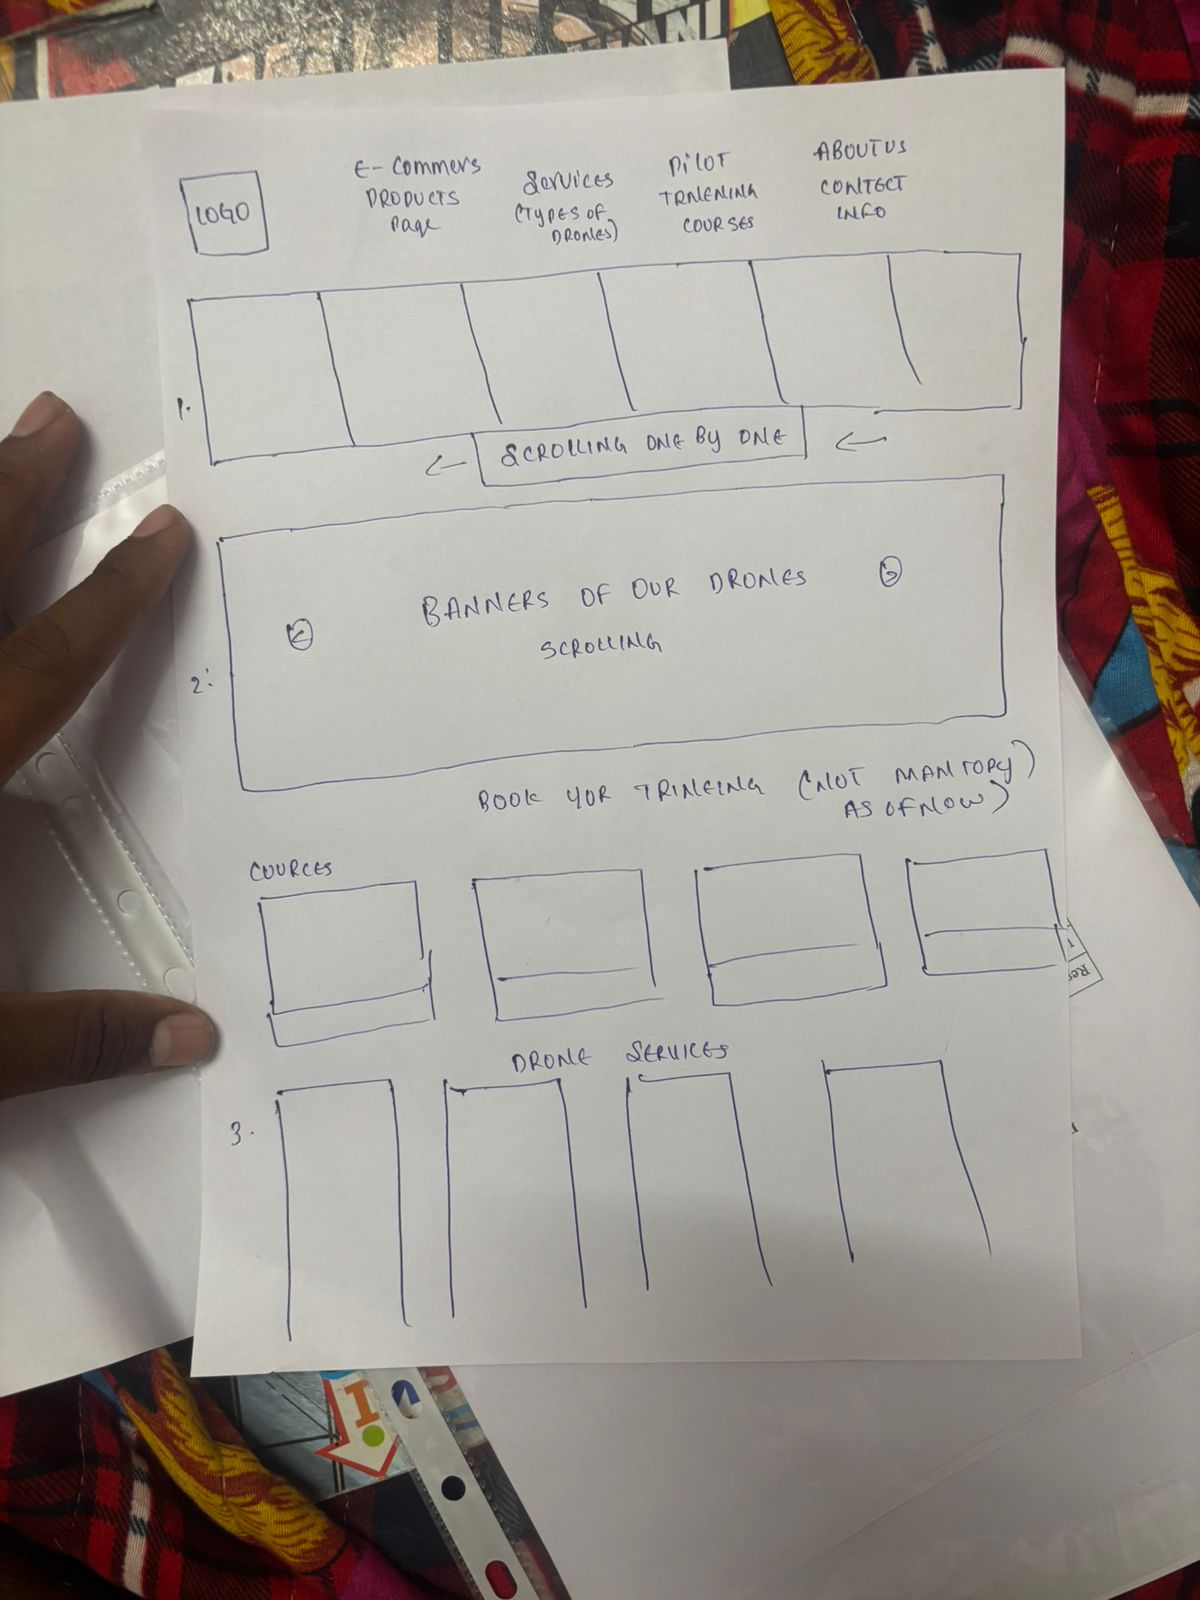 LOGO
E-COMMERS
PRODUCTS
Page
SERVICES
(TYPES OF
DRONES)
PILOT
TRNENING
COURSES
ABOUT US
CONTECT
INFO
1.
← SCROLLING ONE BY ONE ←
2:
BANNERS OF OUR DRONES
SCROLLING
BOOK YOR TRINEING (NOT MANTORY)
AS OF NOW)
COURCES
DRONE SERVICES
3.